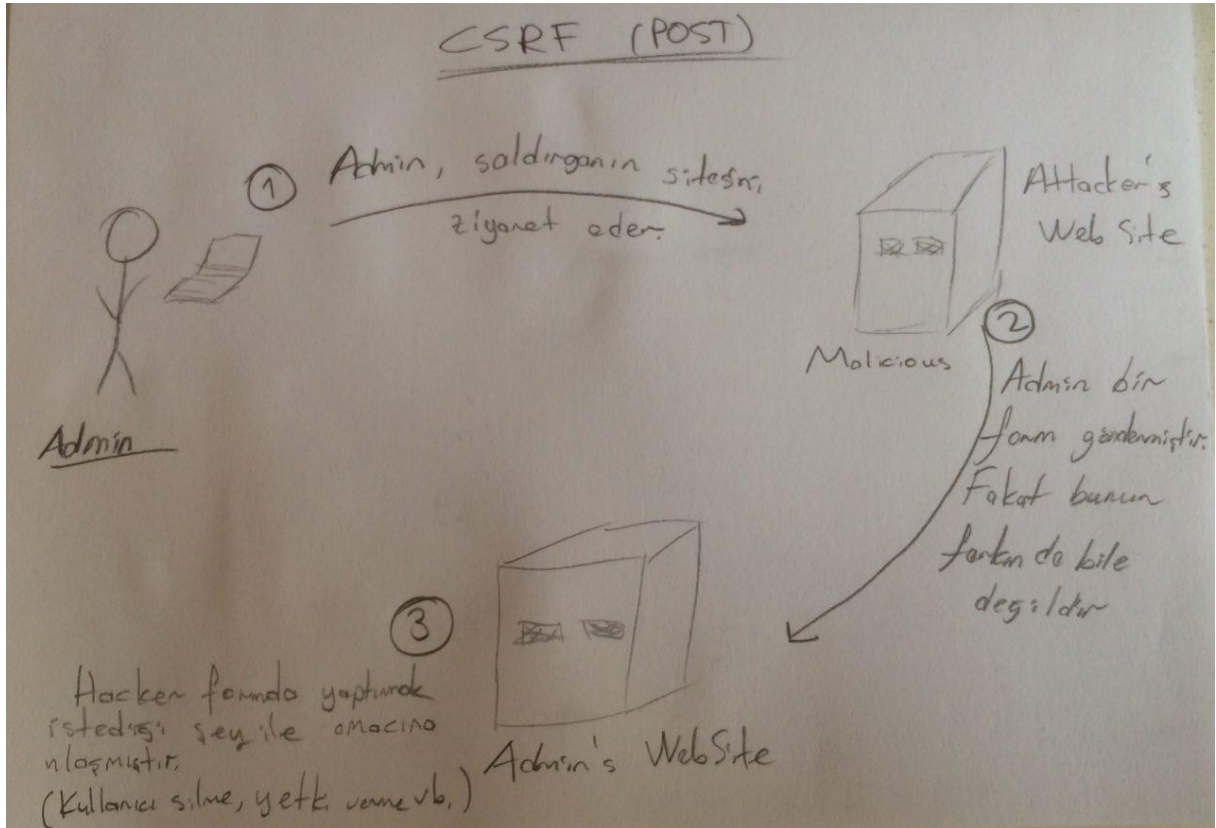 CSRF (POST)
1
Admin, saldırganın sitesini,
ziyaret eder.
Admin
Attacker's
Web Site
Malicious
2
Admin bir
form göndermiştir.
Fakat bunun
farkında bile
değildir
3
Hacker formda yaptırmak
istediği şey ile amacına
ulaşmıştır.
(Kullanıcı silme, yetki verme vb.)
Admin's WebSite